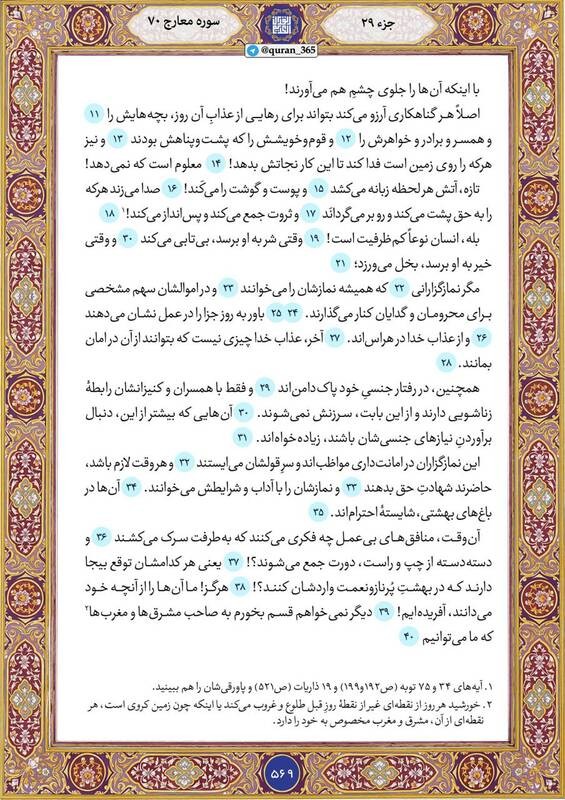 سوره معارج ۷۰
جزء ۲۹
@quran_365
با اینکه آن‌ها را جلوی چشمِ هم می‌آورند!
اصلاً هر گناهکاری آرزو می‌کند بتواند برای رهایی از عذابِ آن روز، بچه‌هایش را ۱۱
و همسر و برادر و خواهرش را ۱۲ و قوم‌وخویشش را که پشت‌وپناهش بودند ۱۳ و نیز
هرکه را روی زمین است فدا کند تا این کار نجاتش بدهد! ۱۴ معلوم است که نمی‌دهد!
تازه، آتش هر لحظه زبانه می‌کشد ۱۵ و پوست و گوشت را می‌کَند! ۱۶ صدا می‌زند هرکه
را به حق پشت می‌کند و رو برمی‌گردانَد ۱۷ و ثروت جمع می‌کند و پس‌انداز می‌کند!۱ ۱۸
بله، انسان نوعاً کم‌ظرفیت است! ۱۹ وقتی شر به او برسد، بی‌تابی می‌کند ۳۰ و وقتی
خیر به او برسد، بخل می‌ورزد؛ ۲۱
مگر نمازگزارانی ۲۲ که همیشه نمازشان را می‌خوانند ۲۳ و در اموالشان سهم مشخصی
برای محرومان و گدایان کنار می‌گذارند. ۲۴ ۲۵ باور به روز جزا را در عمل نشان می‌دهند
۲۶ و از عذاب خدا در هراس‌اند. ۲۷ آخر، عذاب خدا چیزی نیست که بتوانند از آن در امان
بمانند. ۲۸
همچنین، در رفتار جنسیِ خود پاک‌دامن‌اند ۲۹ و فقط با همسران و کنیزانشان رابطهٔ
زناشویی دارند و از این بابت، سرزنش نمی‌شوند. ۳۰ آن‌هایی که بیشتر از این، دنبال
برآوردنِ نیازهای جنسی‌شان باشند، زیاده‌خواه‌اند. ۳۱
این نمازگزاران در امانت‌داری مواظب‌اند و سرِ قولشان می‌ایستند ۳۲ و هر وقت لازم باشد،
حاضرند شهادتِ حق بدهند ۳۳ و نمازشان را با آداب و شرایطش می‌خوانند. ۳۴ آن‌ها در
باغ‌های بهشتی، شایستهٔ احترام‌اند. ۳۵
آن‌وقت، منافق‌های بی‌عمل چه فکری می‌کنند که به‌طرفت سرک می‌کشند ۳۶ و
دسته‌دسته از چپ و راست، دورت جمع می‌شوند؟! ۳۷ یعنی هر کدامشان توقع بیجا
دارند که در بهشتِ پُرنازونعمت واردشان کنند؟! ۳۸ هرگز! ما آن‌ها را از آنچه خود
می‌دانند، آفریده‌ایم! ۳۹ دیگر نمی‌خواهم قسم بخورم به صاحب مشرق‌ها و مغرب‌ها۲
که ما می‌توانیم ۴۰
۱. آیه‌های ۳۴ و ۷۵ توبه (ص۱۹۲و۱۹۹) و ۱۹ ذاریات (ص۵۲۱) و پاورقی‌شان را هم ببینید.
۲. خورشید هر روز از نقطه‌ای غیر از نقطهٔ روز قبل طلوع و غروب می‌کند یا اینکه چون زمین کروی است، هر
نقطه‌ای از آن، مشرق و مغرب مخصوص به خود را دارد.
۵۶۹